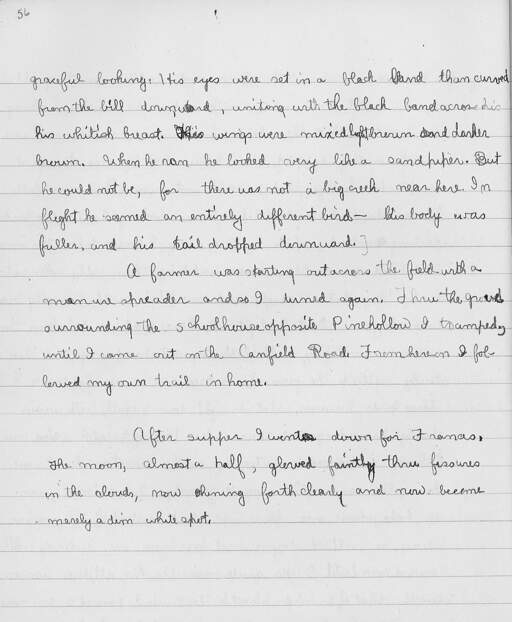 56
graceful looking. His eyes were set in a black band than curved
from the bill downward, uniting with the black band across his
his whitish breast. His wings were mixed light brown and darker
brown. When he ran he looked very like a sandpiper. But
he could not be, for there was not a big creek near here. In
flight he seemed an entirely different bird — his body was
fuller, and his tail dropped downward.]
A farmer was starting out across the field with a
manure spreader and so I turned again. Thru the
surrounding the schoolhouse opposite Pinehollow I tramped,
until I came out on the Canfield Road. From here on I fol-
lowed my own trail in home.
After supper I went down for Francis.
The moon, almost a half, glowed faintly thru fissures
in the clouds, now shining forth clearly and now become
merely a dim white spot.